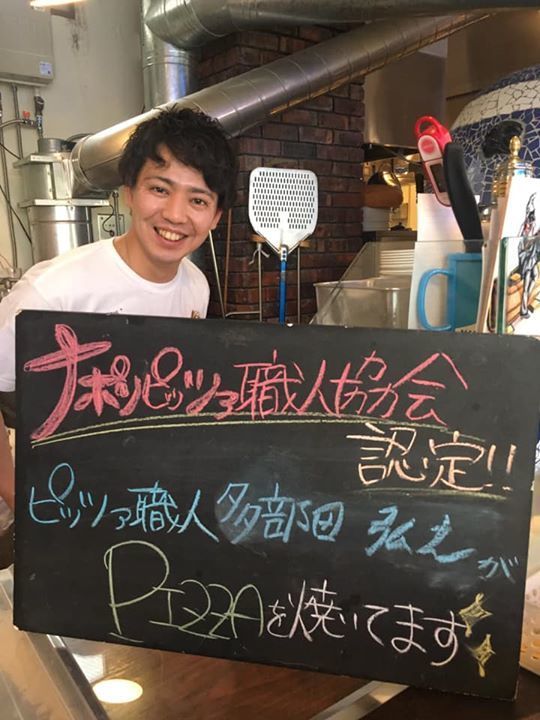 ナポリピッツァ職人協会
認定!!
ピッツァ職人 多部田 弘之が
PIZZAを焼いてます